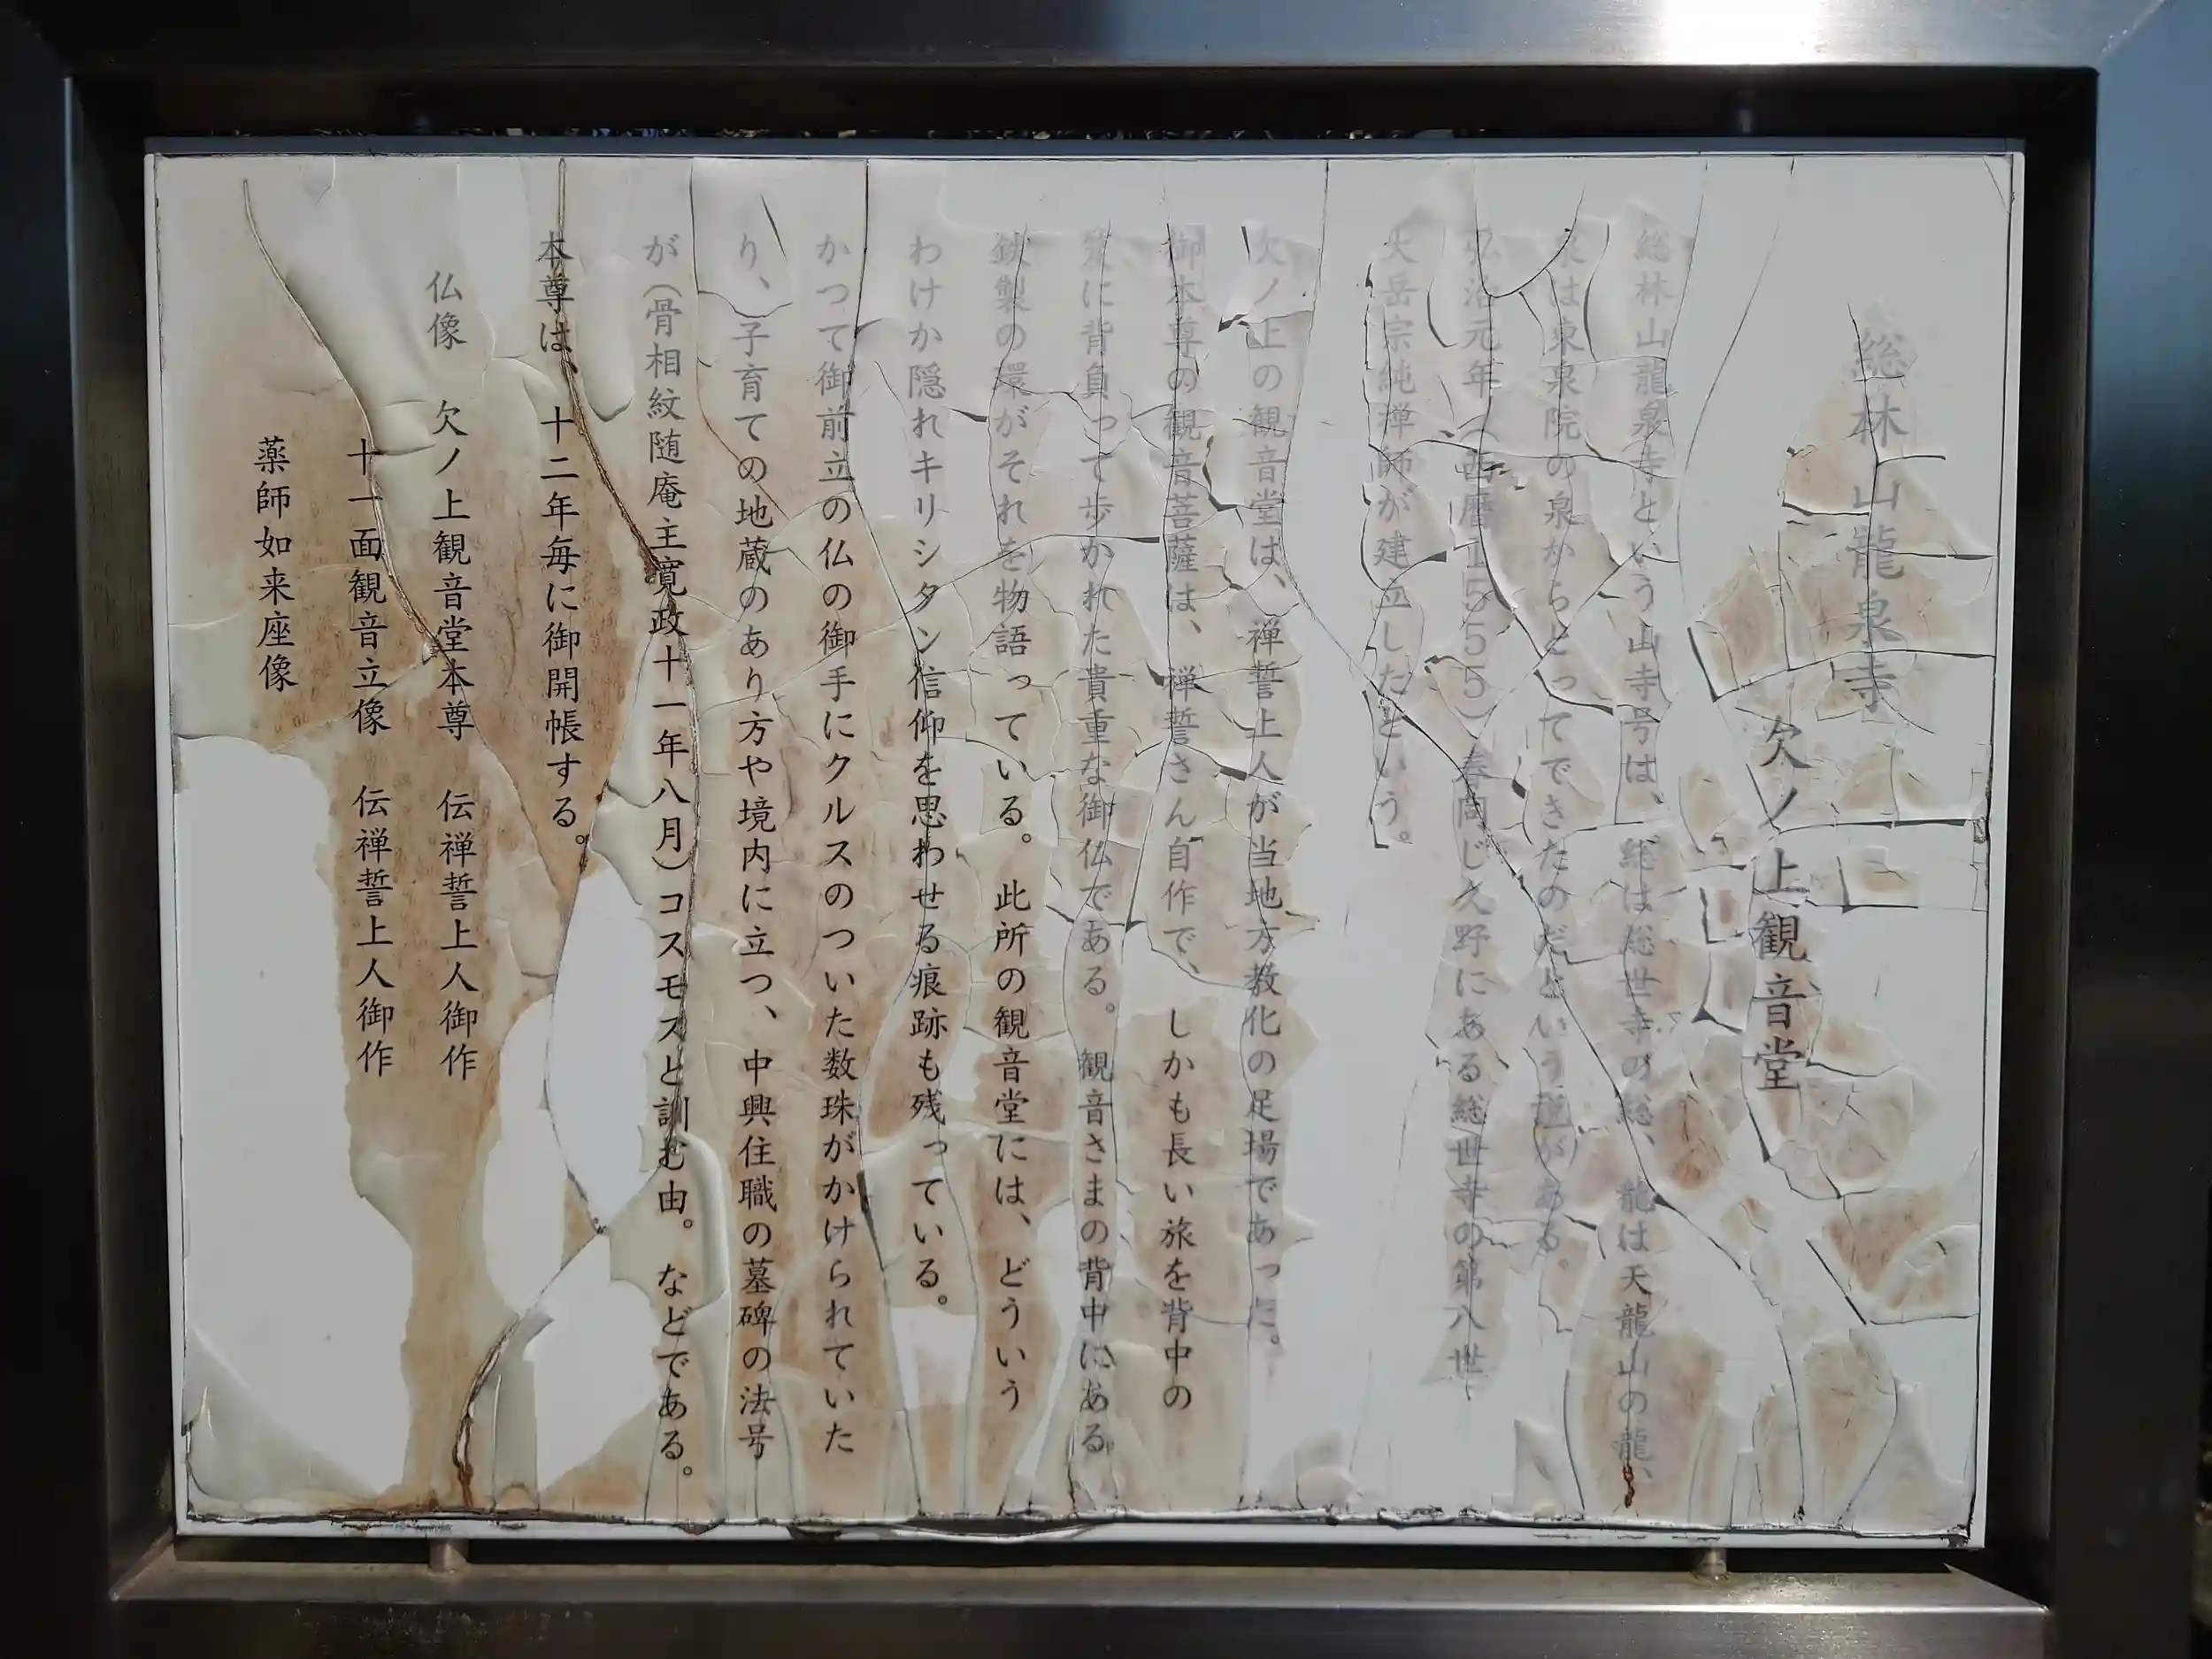 総林山龍泉寺
欠ノ上観音堂
総林山龍泉寺という山寺号は、総は総世寺の総、龍は天龍山の龍、
泉は東泉院の泉からとってできたのだという説がある。
弘治元年(西暦1555)春同じ久野にある総世寺の第八世
大岳宗純禅師が建立したという。
欠ノ上の観音堂は、禅誓上人が当地方教化の足場であった。
御本尊の観音菩薩は、禅誓さん自作で、しかも長い旅を背中の
笈に背負って歩かれた貴重な御仏である。観音さまの背中にある
鉄製の環がそれを物語っている。此所の観音堂には、どういう
わけか隠れキリシタン信仰を思わせる痕跡も残っている。
かつて御前立の仏の御手にクルスのついた数珠がかけられていた
り、子育ての地蔵のあり方や境内に立つ、中興住職の墓碑の法号
が(骨相紋随庵主寛政十一年八月)コスモスと訓む由。などである。
本尊は、十二年毎に御開帳する。
仏像 欠ノ上観音堂本尊 伝禅誓上人御作
十一面観音立像 伝禅誓上人御作
薬師如来座像